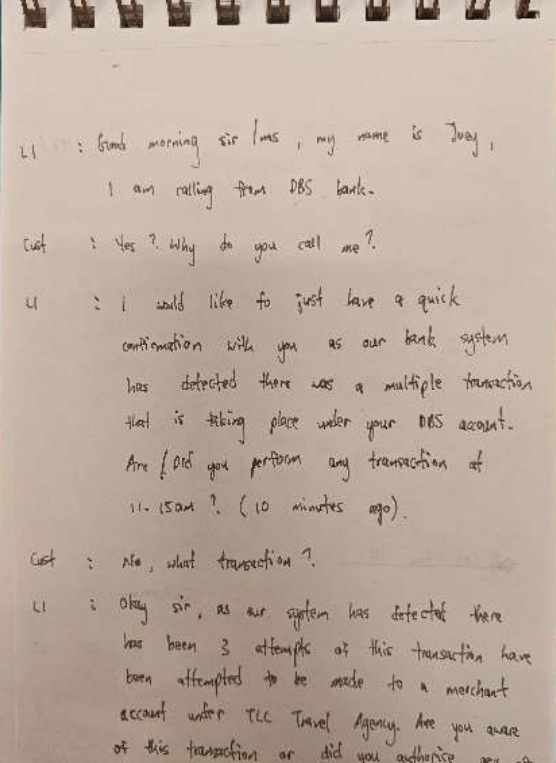 L1 : Good morning sir / ms, my name is Joey,
I am calling from DBS bank.
Cust : Yes? Why do you call me?
L1 : I would like to just have a quick
confirmation with you as our bank system
has detected there was a multiple transaction
that is taking place under your DBS account.
Are / Did you perform any transaction at
11-15am? (10 minutes ago).
Cust : No, what transaction?
L1 : Okay sir, as our system has detected there
has been 3 attempts of this transaction have
been attempted to be made to a merchant
account under TLC Travel Agency. Are you aware
of this transaction or did you authorise